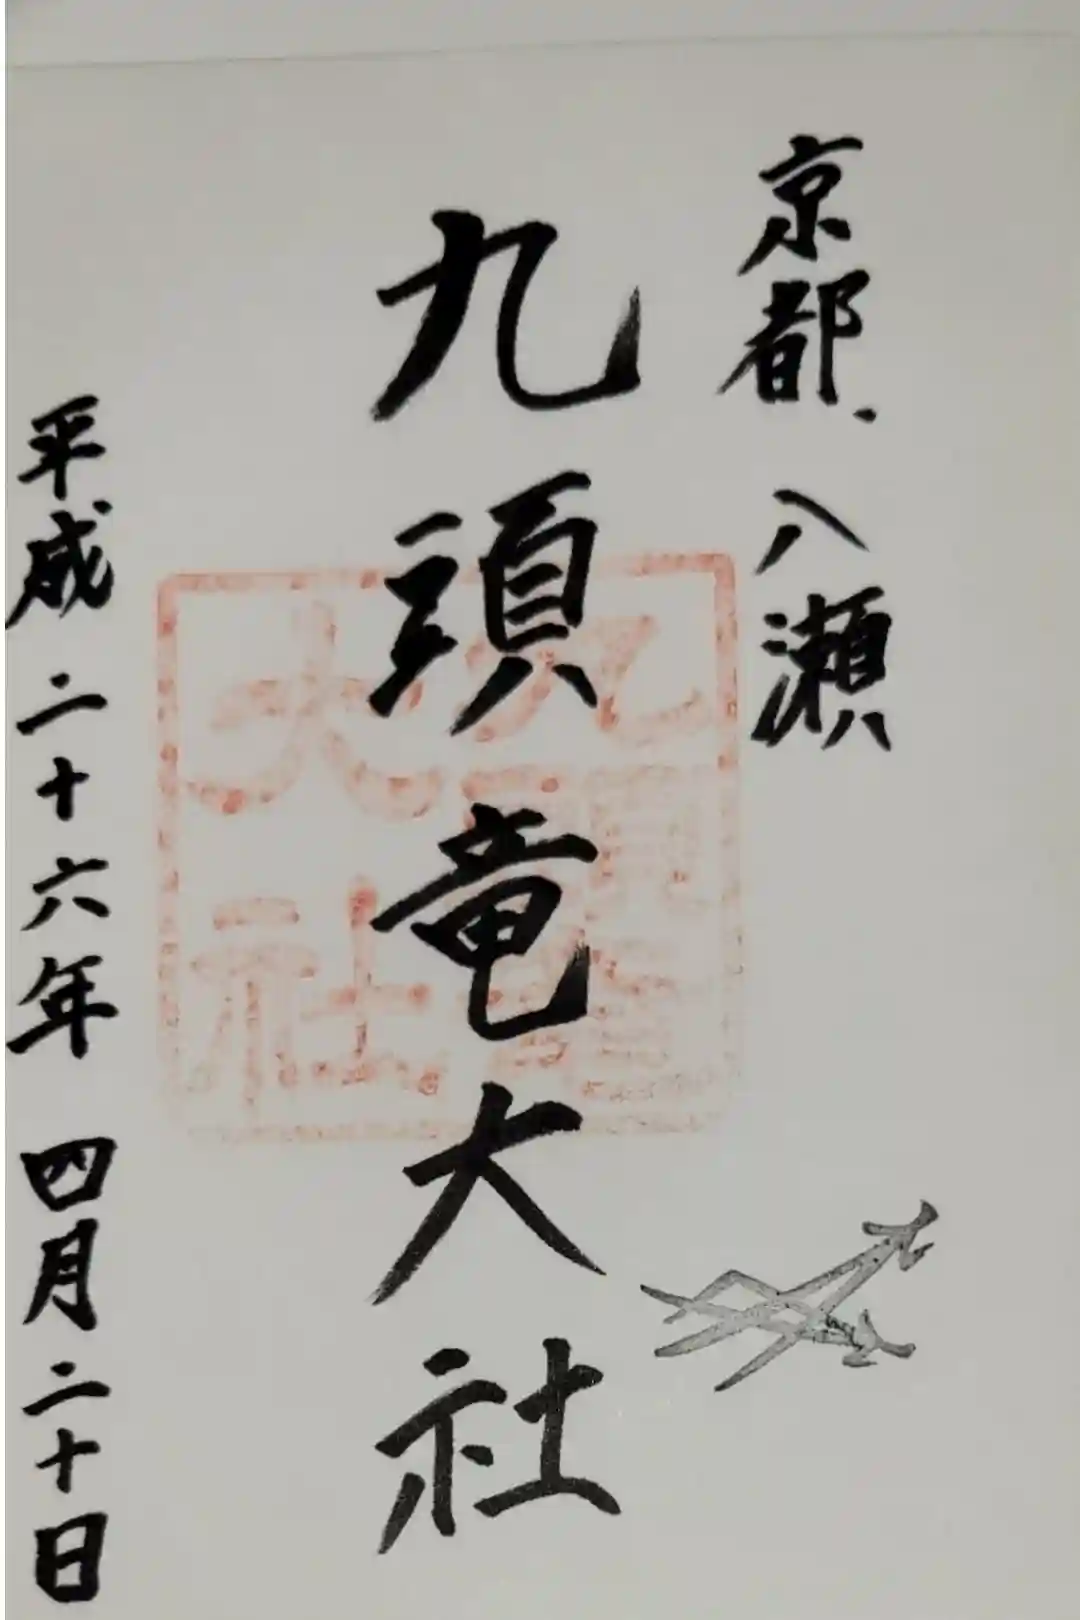 京都、八瀬
九頭竜大社
九頭竜
大社
平成二十六年四月二十日